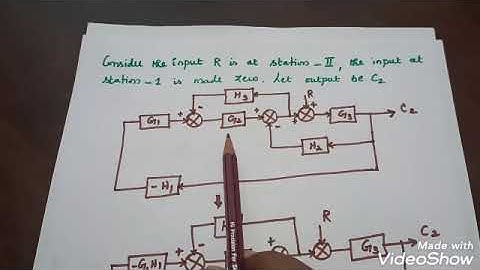 Consider the Input R is at station-II, the input at
station-1 is made zero. Let output be C2
H3
R
G1
G2
G3
C2
H2
-H1
R
C2
-G1H1
G3
Made with
VideoShow